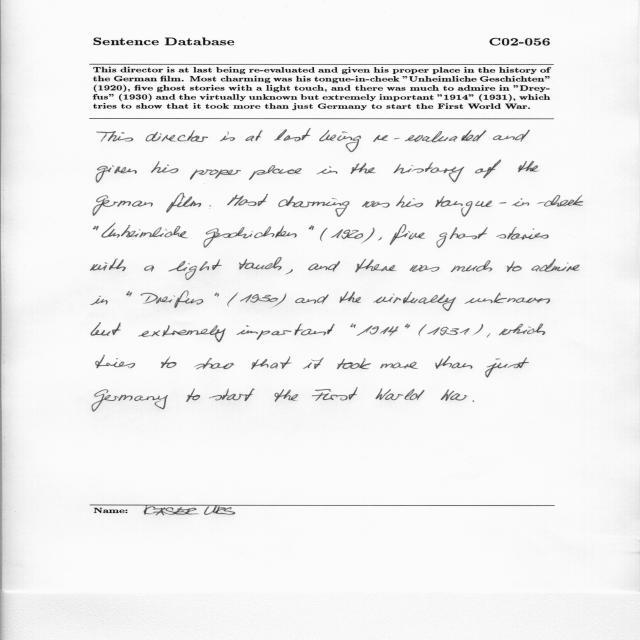 Sentence Database C02-056
This director is at last being re-evaluated and given his proper place in the history of
the German film. Most charming was his tongue-in-cheek "Unheimliche Geschichten"
(1920), five ghost stories with a light touch, and there was much to admire in "Drey-
fus" (1930) and the virtually unknown but extremely important "1914" (1931), which
tries to show that it took more than just Germany to start the First World War.
This director is at last being re-evaluated and
given his proper place in the history of the
German film. Most charming was his tongue-in-cheek
"Unheimliche Geschichten" (1920), five ghost stories
with a light touch, and there was much to admire
in "Dreifus" (1930) and the virtually unknown
but extremely important "1914" (1931), which
tries to show that it took more than just
Germany to start the First World War.
Name: